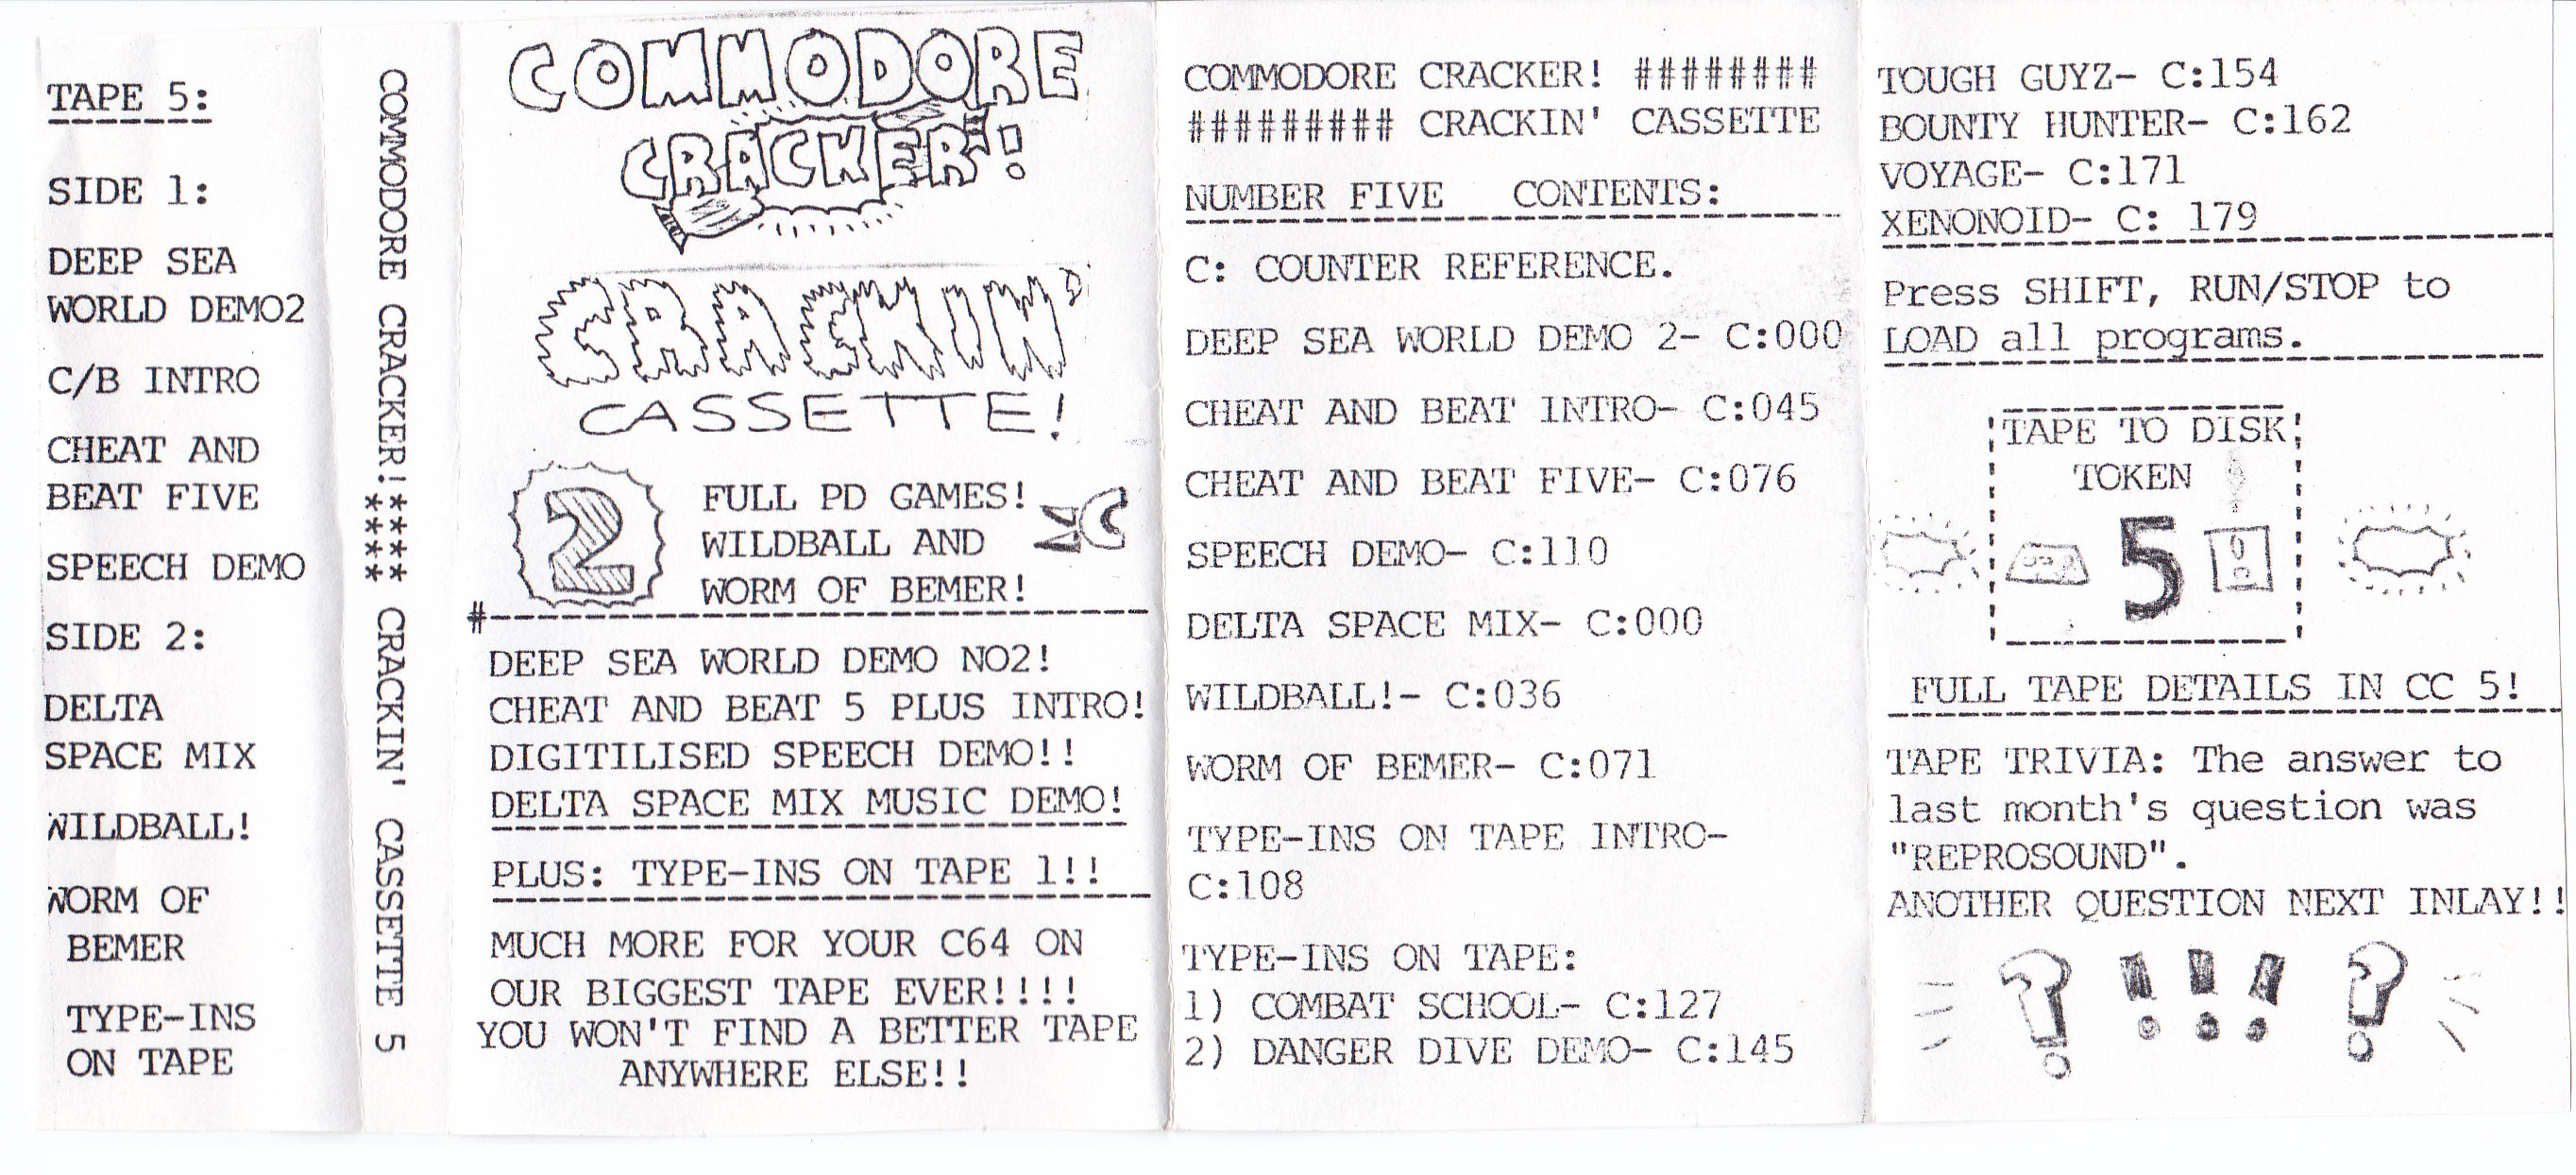 TAPE 5:
SIDE 1:
DEEP SEA
WORLD DEMO2
C/B INTRO
CHEAT AND
BEAT FIVE
SPEECH DEMO
SIDE 2:
DELTA
SPACE MIX
WILDBALL!
WORM OF
BEMER
TYPE-INS
ON TAPE
COMMODORE CRACKER!**** **** CRACKIN' CASSETTE 5
COMMODORE
CRACKER!
CRACKIN'
CASSETTE!
2
FULL PD GAMES!
WILDBALL AND
WORM OF BEMER!
#------------------------------
DEEP SEA WORLD DEMO NO2!
CHEAT AND BEAT 5 PLUS INTRO!
DIGITILISED SPEECH DEMO!!
DELTA SPACE MIX MUSIC DEMO!
PLUS: TYPE-INS ON TAPE 1!!
MUCH MORE FOR YOUR C64 ON
OUR BIGGEST TAPE EVER!!!!
YOU WON'T FIND A BETTER TAPE
ANYWHERE ELSE!!
COMMODORE CRACKER! ########
######### CRACKIN' CASSETTE
NUMBER FIVE CONTENTS:
C: COUNTER REFERENCE.
DEEP SEA WORLD DEMO 2- C:000
CHEAT AND BEAT INTRO- C:045
CHEAT AND BEAT FIVE- C:076
SPEECH DEMO- C:110
DELTA SPACE MIX- C:000
WILDBALL!- C:036
WORM OF BEMER- C:071
TYPE-INS ON TAPE INTRO-
C:108
TYPE-INS ON TAPE:
1) COMBAT SCHOOL- C:127
2) DANGER DIVE DEMO- C:145
TOUGH GUYZ- C:154
BOUNTY HUNTER- C:162
VOYAGE- C:171
XENONOID- C: 179
Press SHIFT, RUN/STOP to
LOAD all programs.
TAPE TO DISK
TOKEN
5
FULL TAPE DETAILS IN CC 5!
TAPE TRIVIA: The answer to
last month's question was
"REPROSOUND".
ANOTHER QUESTION NEXT INLAY!!
? ! ! ! ?